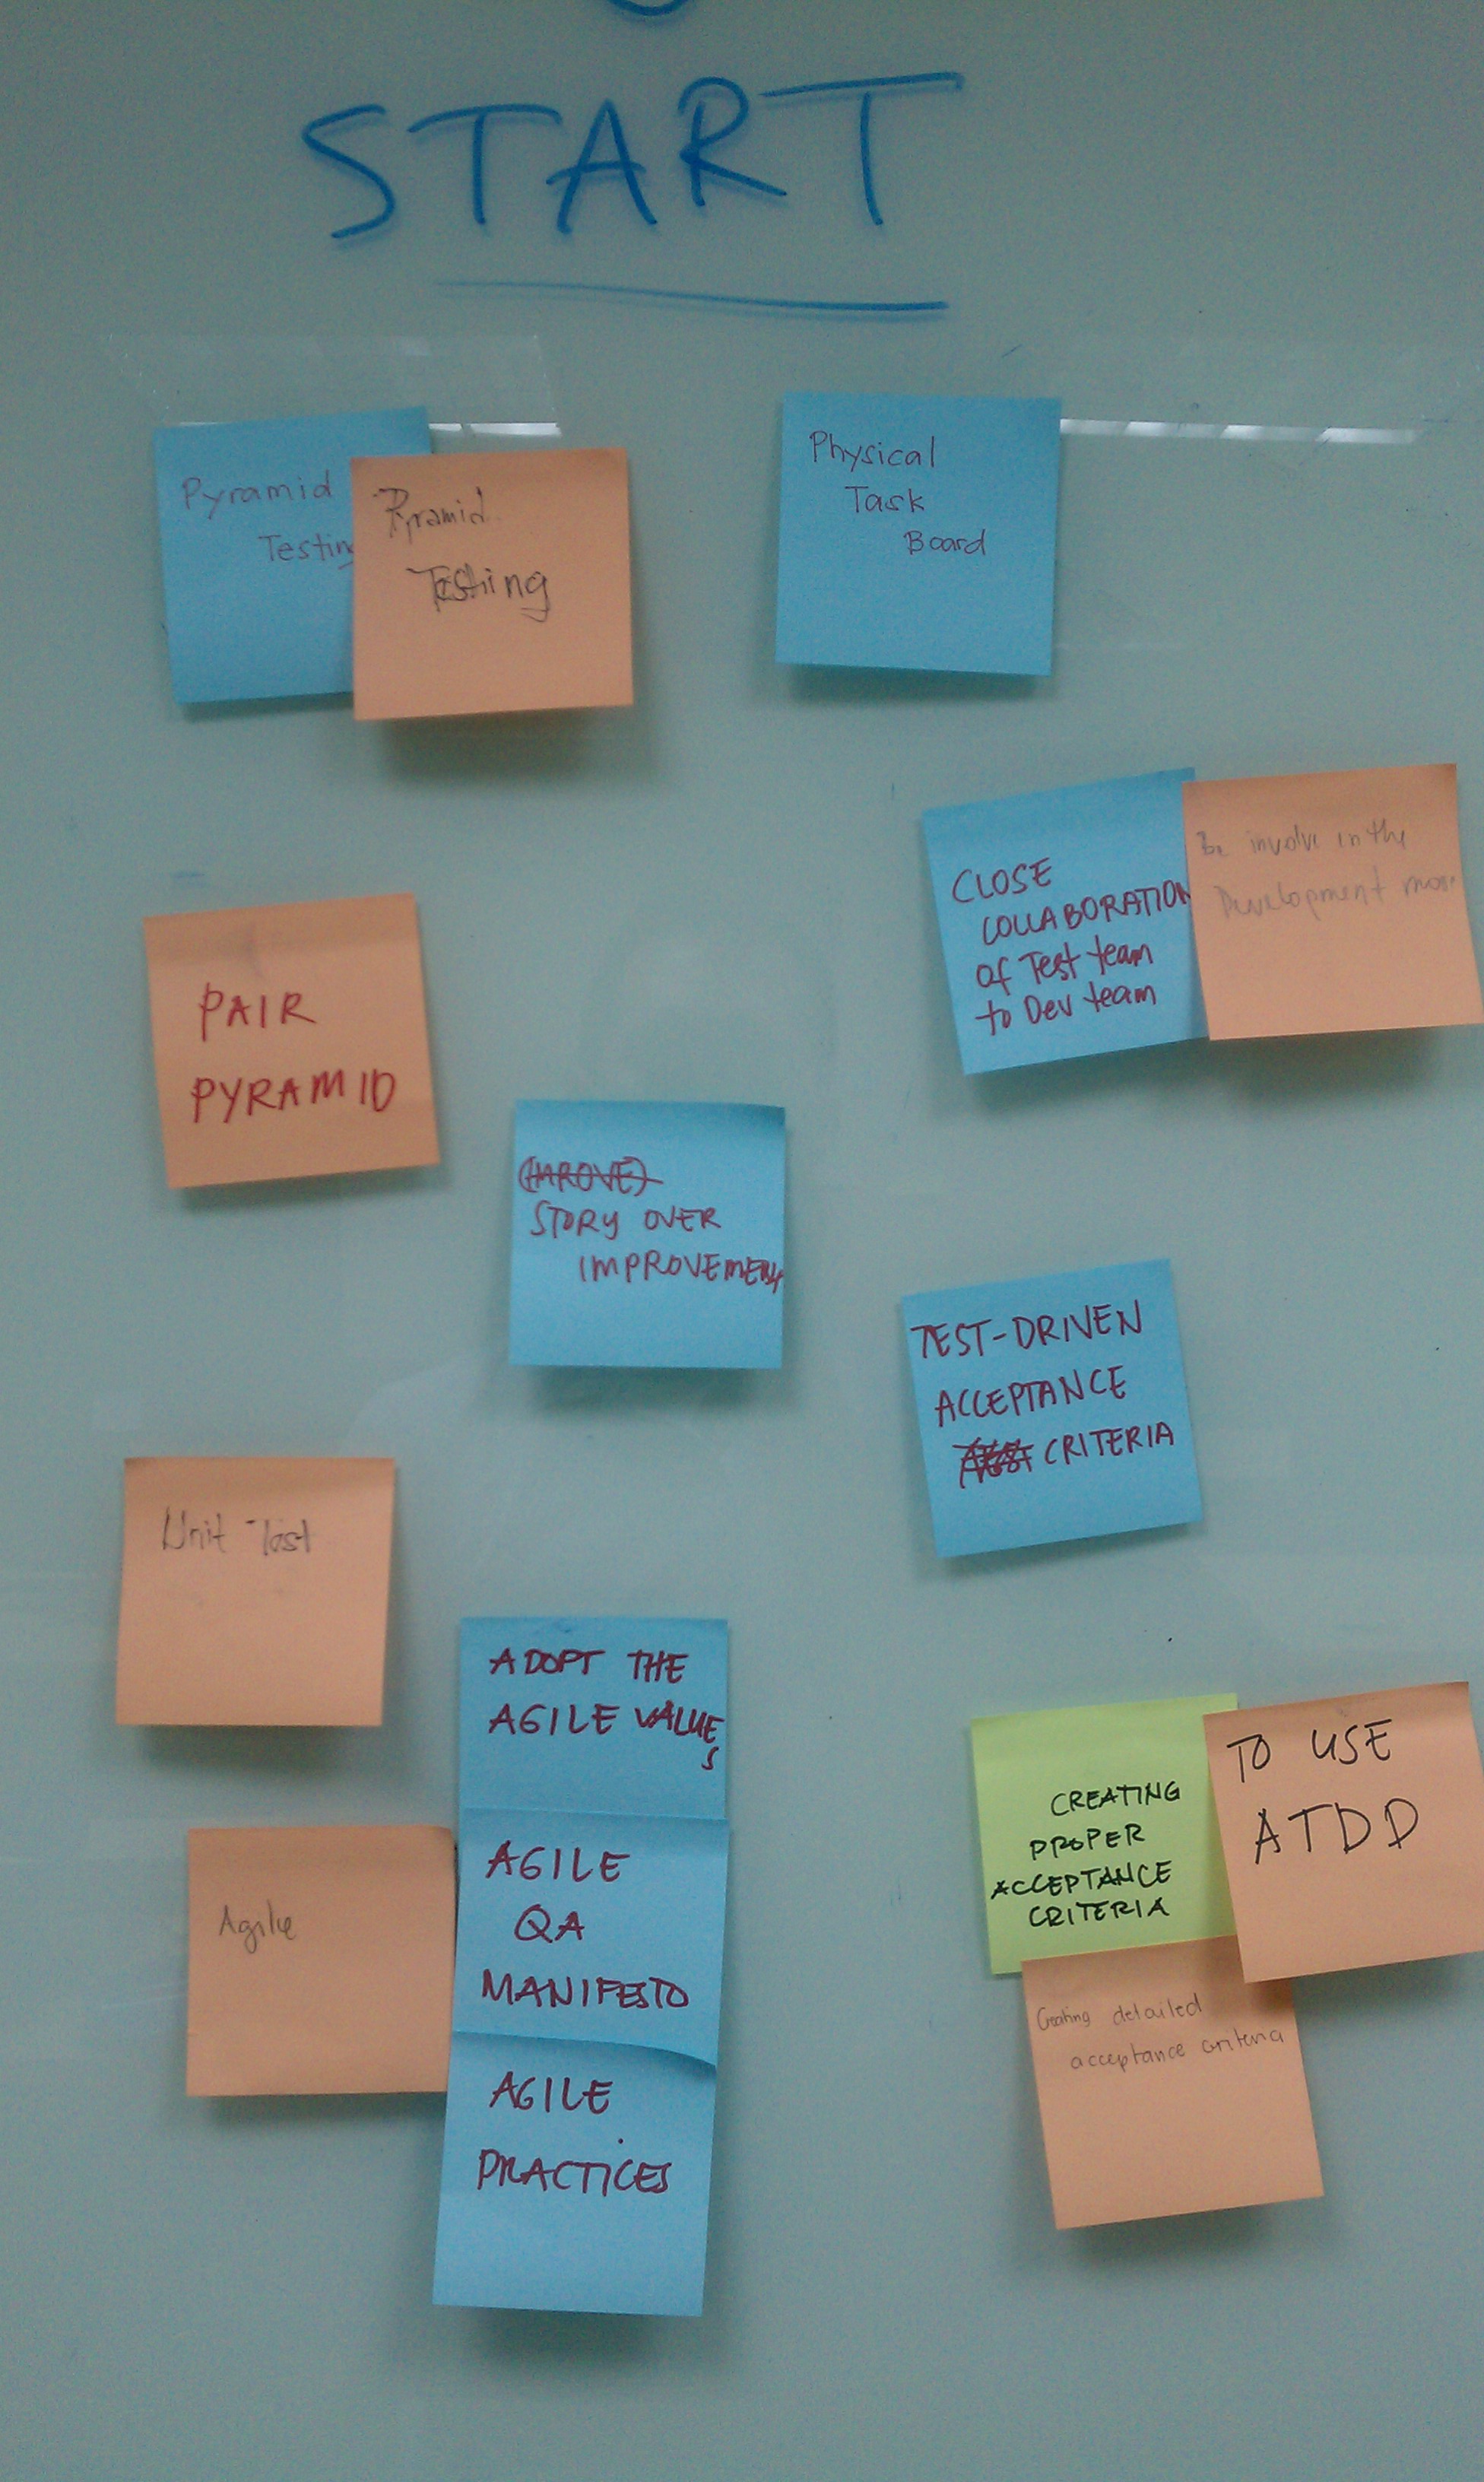 START
Pyramid
Testing
Pyramid
Testing
Physical
Task
Board
CLOSE
COLLABORATION
of Test team
to Dev team
Be involve in the
Development more
PAIR
PYRAMID
(IMROVE)
STORY OVER
IMPROVEMENT
TEST-DRIVEN
ACCEPTANCE
CRITERIA
Unit Test
ADOPT THE
AGILE VALUE
S
Agile
AGILE
QA
MANIFESTO
AGILE
PRACTICES
CREATING
PROPER
ACCEPTANCE
CRITERIA
TO USE
ATDD
Creating detailed
acceptance criteria